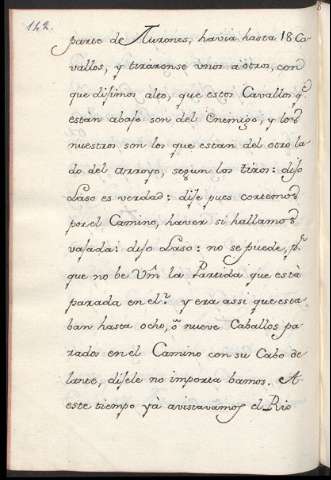 142.
parte de Aurones, havia hasta 18 Ca-
vallos, y tiraronse unos a otros, con
que digimos alto, que estos Cavallos q.e
estan abajo son del Enemigo, y los
nuestros son los que estan del otro la-
do del arroyo, segun los tiros: dijo
Laso es verdad: dije pues cortemos
por el Camino, haver si hallamos
vajada: dijo Laso: no se puede, p.r
que no be Vm̃ la Partida que està
parada en el.? y era assi que esta
ban hasta ocho, ó nueve Caballos pa-
rados en el Camino con su Cabo de
lante, dijele no importa bamos. A
este tiempo yà avistavamos el Rio